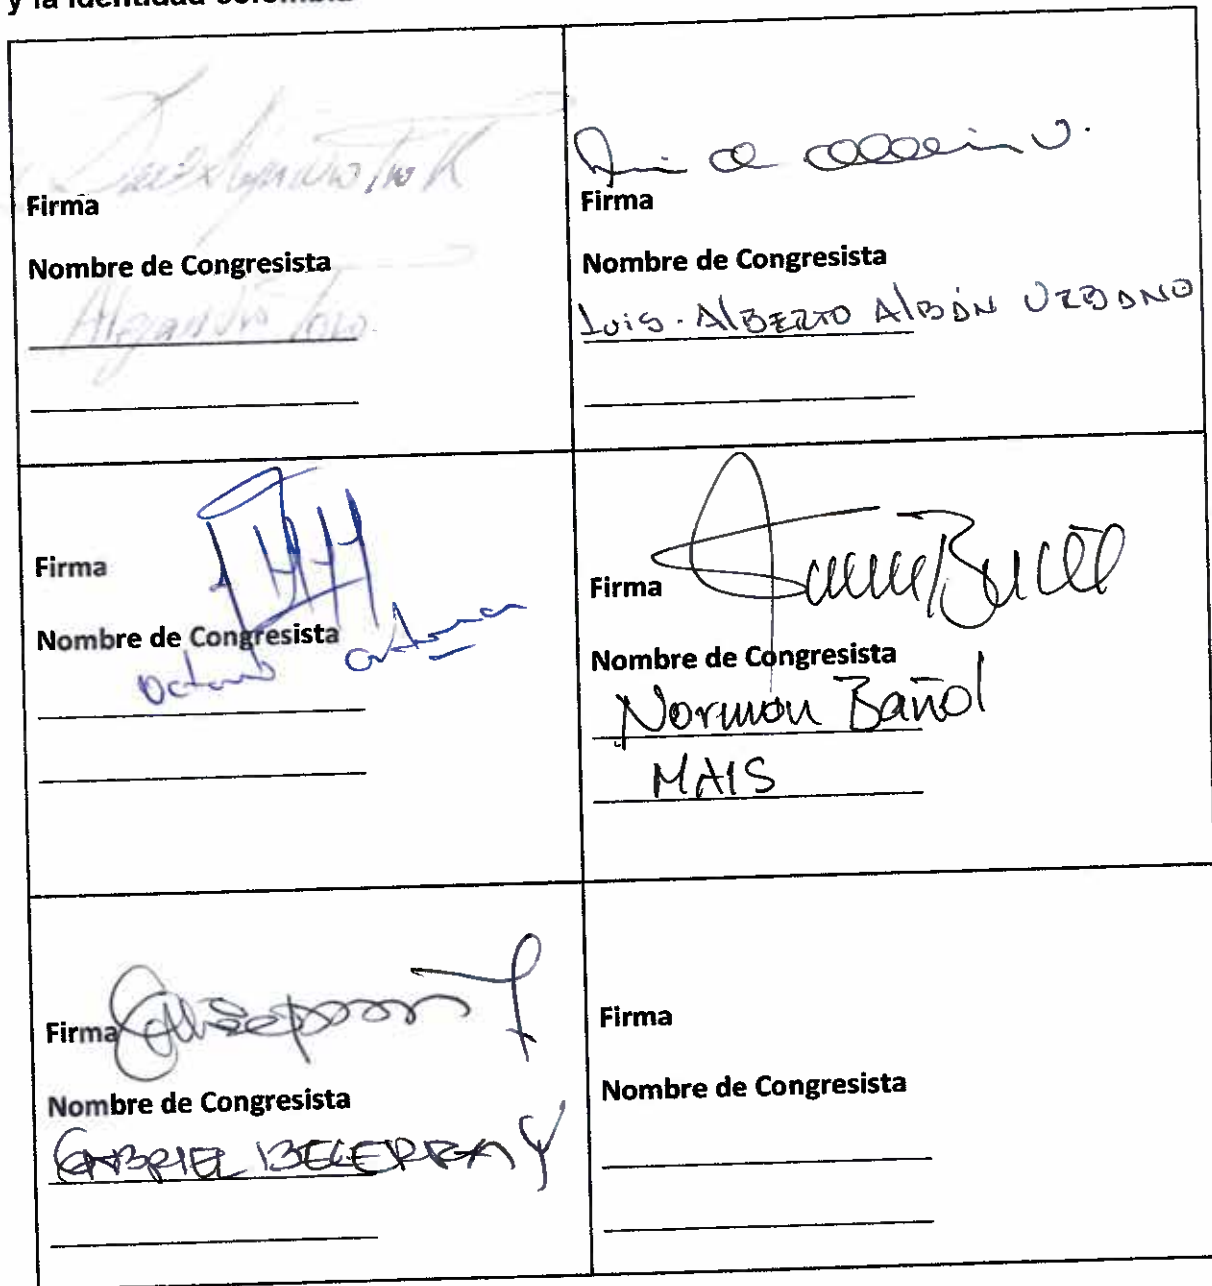 y la identidad colombia
Firma
Nombre de Congresista
Alejandro Toro
Firma
Nombre de Congresista
Luis. AlBERTO AlBÁN URBANO
Firma
Nombre de Congresista
Octavio Cardona
Firma
Nombre de Congresista
Norman Bañol
MAIS
Firma
Nombre de Congresista
GABRIEL BECERRA Y
Firma
Nombre de Congresista